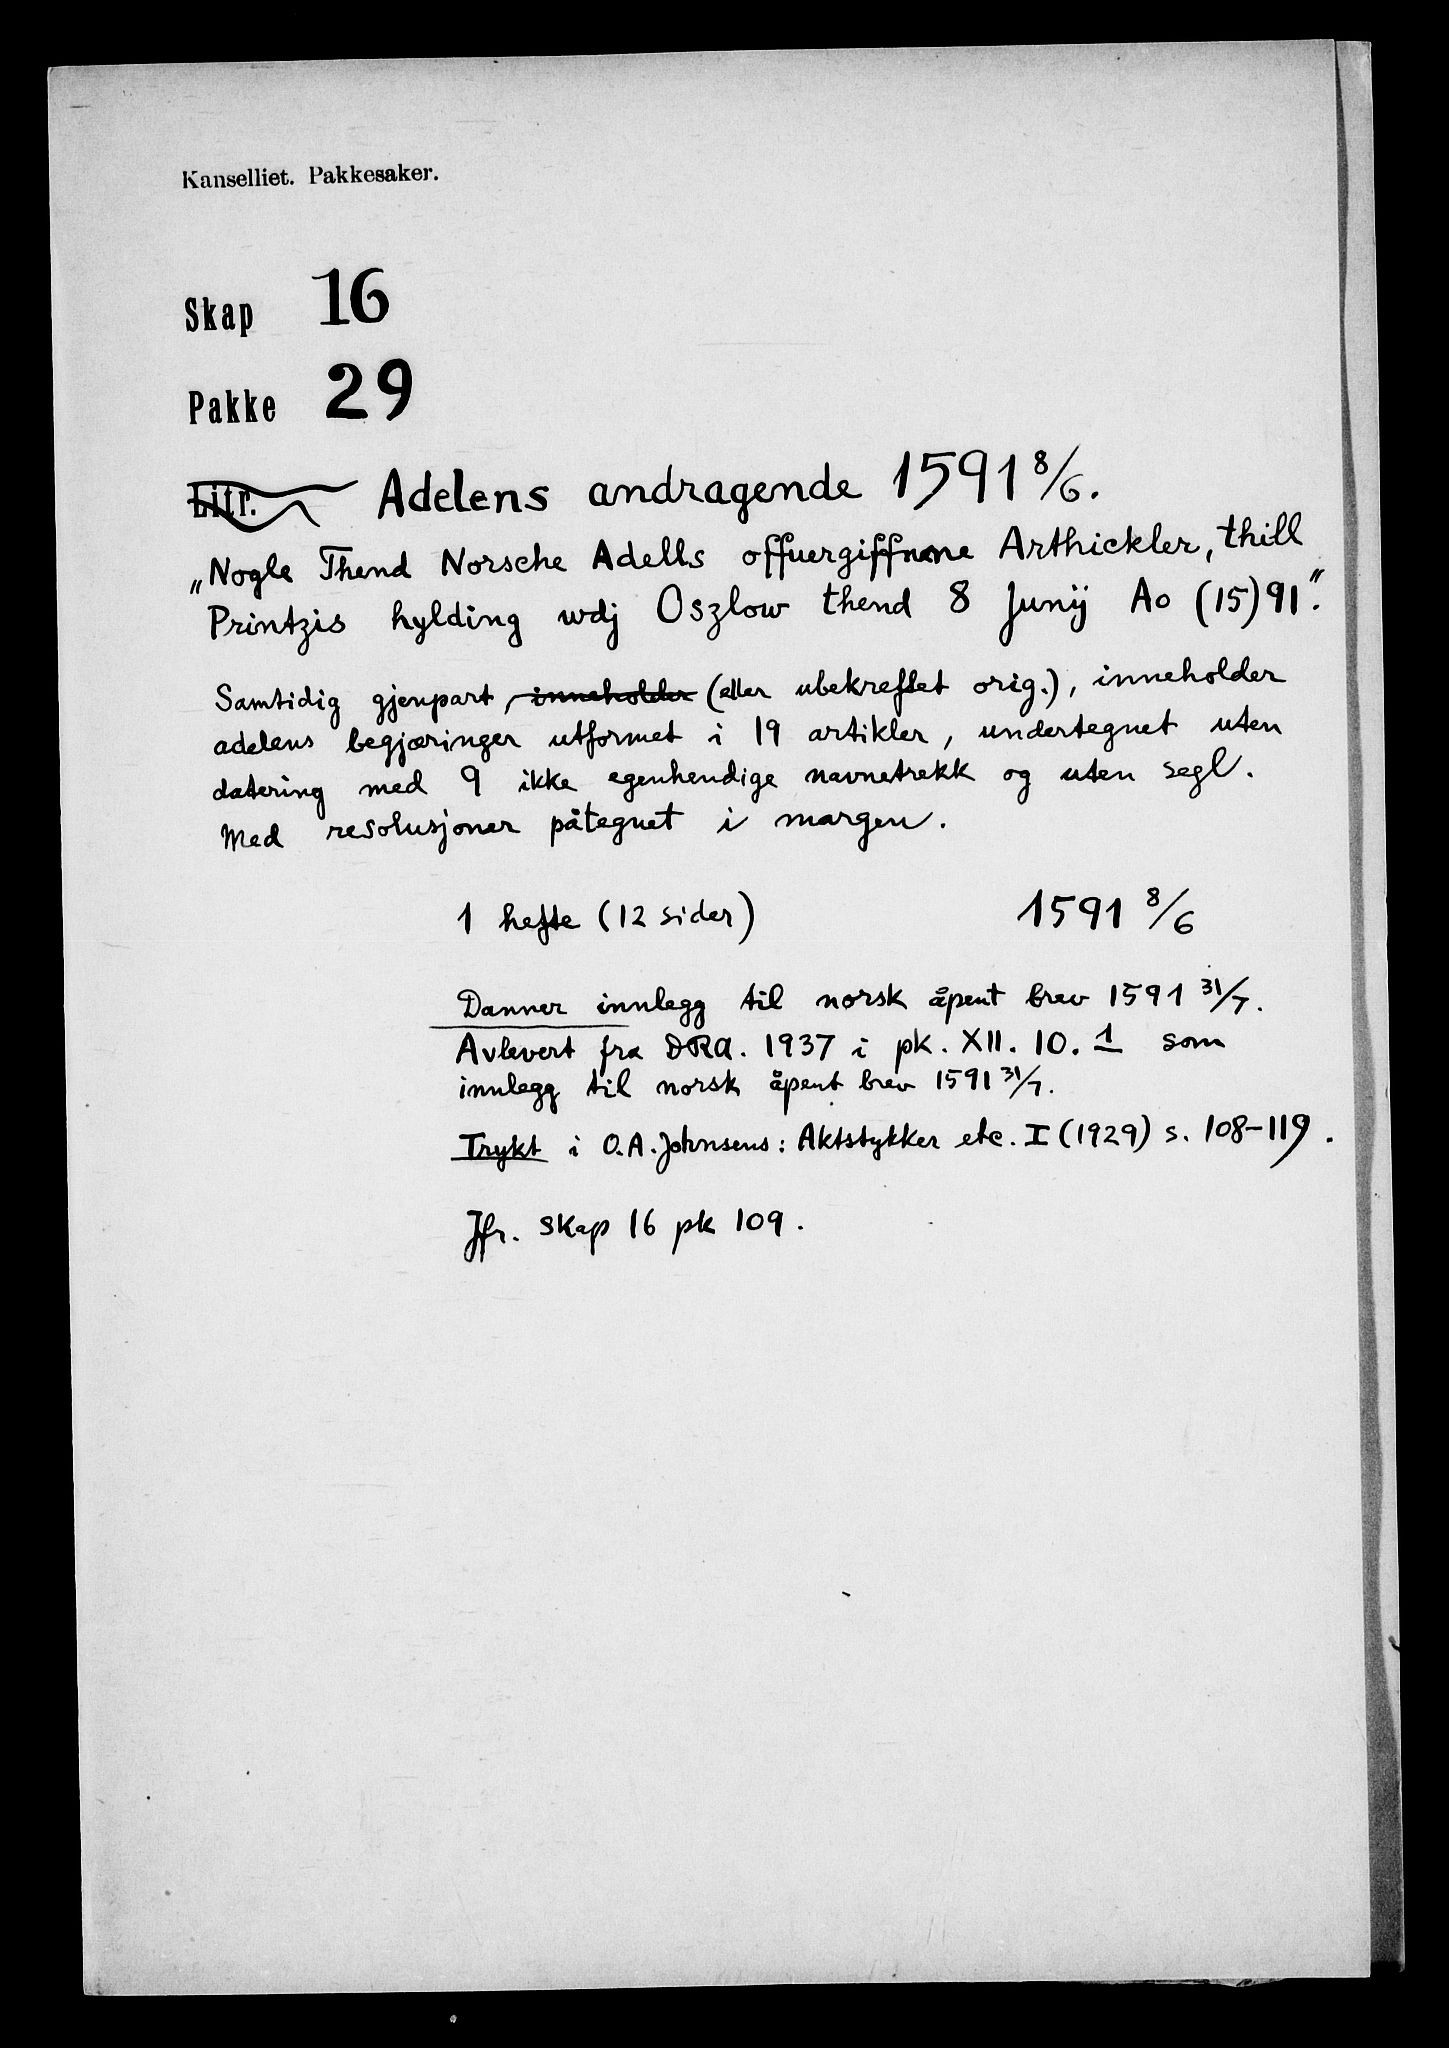 Kanselliet. Pakkesaker.
Skap 16
Pakke 29
Litr. Adelens andragende 1591 8/6.
„Nogle Thend Norsche Adells offuergiffnene Arthickler, thill
Printzis hylding wdj Oszlow thend 8 Junij Ao (15)91".
Samtidig gjenpart, inneholder (eller ubekreftet orig.), inneholder
adelens begjæringer utformet i 19 artikler, undertegnet uten
datering med 9 ikke egenhendige navnetrekk og uten segl.
Med resolusjoner påtegnet i margen.
1 hefte (12 sider) 1591 8/6
Danner innlegg til norsk åpent brev 1591 31/7.
Avlevert fra DRA. 1937 i pk. XII. 10. 1 som
innlegg til norsk åpent brev 1591 31/7.
Trykt i O.A. Johnsens: Aktstykker etc. I (1929) s. 108-119.
Jfr. Skap 16 pk 109.